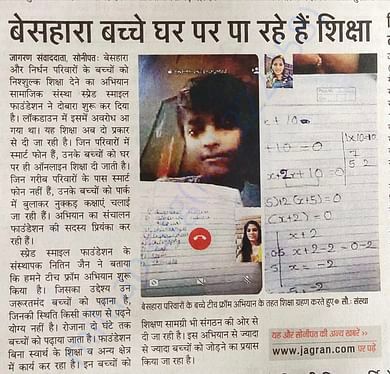 बेसहारा बच्चे घर पर पा रहे हैं शिक्षा
जागरण संवाददाता, सोनीपत: बेसहारा
और निर्धन परिवारों के बच्चों को
निश्शुल्क शिक्षा देने का अभियान
सामाजिक संस्था स्प्रेड स्माइल
फाउंडेशन ने दोबारा शुरू कर दिया
है। लॉकडाउन में इसमें अवरोध आ
गया था। यह शिक्षा अब दो प्रकार
से दी जा रही है। जिन परिवारों में
स्मार्ट फोन हैं, उनके बच्चों को घर
पर ही ऑनलाइन शिक्षा दी जाती है।
जिन गरीब परिवारों के पास स्मार्ट
फोन नहीं हैं, उनके बच्चों को पार्क
में बुलाकर नुक्कड़ कक्षाएं चलाई
जा रही हैं। अभियान का संचालन
फाउंडेशन की सदस्य प्रियंका कर
रही हैं।
स्प्रेड स्माइल फाउंडेशन के
संस्थापक नितिन जैन ने बताया
कि हमने टीच फ्रॉम अभियान शुरू
किया है। जिसका उद्देश्य उन
जरूरतमंद बच्चों को पढ़ाना है,
जिनकी स्थिति किसी कारण से पढ़ने
योग्य नहीं है। रोजाना दो घंटे तक
बच्चों को पढ़ाया जाता है। फाउंडेशन
बिना स्वार्थ के शिक्षा व अन्य क्षेत्र
में कार्य कर रहा है। इन बच्चों को
x + 10
+10 = 0
x+2x+10=0
5)2(x+2)=0
(x+2)=0
x+2
x+2-2=0-2
x = -2
बेसहारा परिवारों के बच्चे टीच फ्रॉम अभियान के तहत शिक्षा ग्रहण करते हुए● सौ. : संस्था
शिक्षण सामग्री भी संगठन की ओर से
दी जा रही है। इस अभियान से ज्यादा
से ज्यादा बच्चों को जोड़ने का प्रयास
किया जा रहा है।
यह और सोनीपत की अन्य खबरें >>
www.jagran.com पर पढ़ें